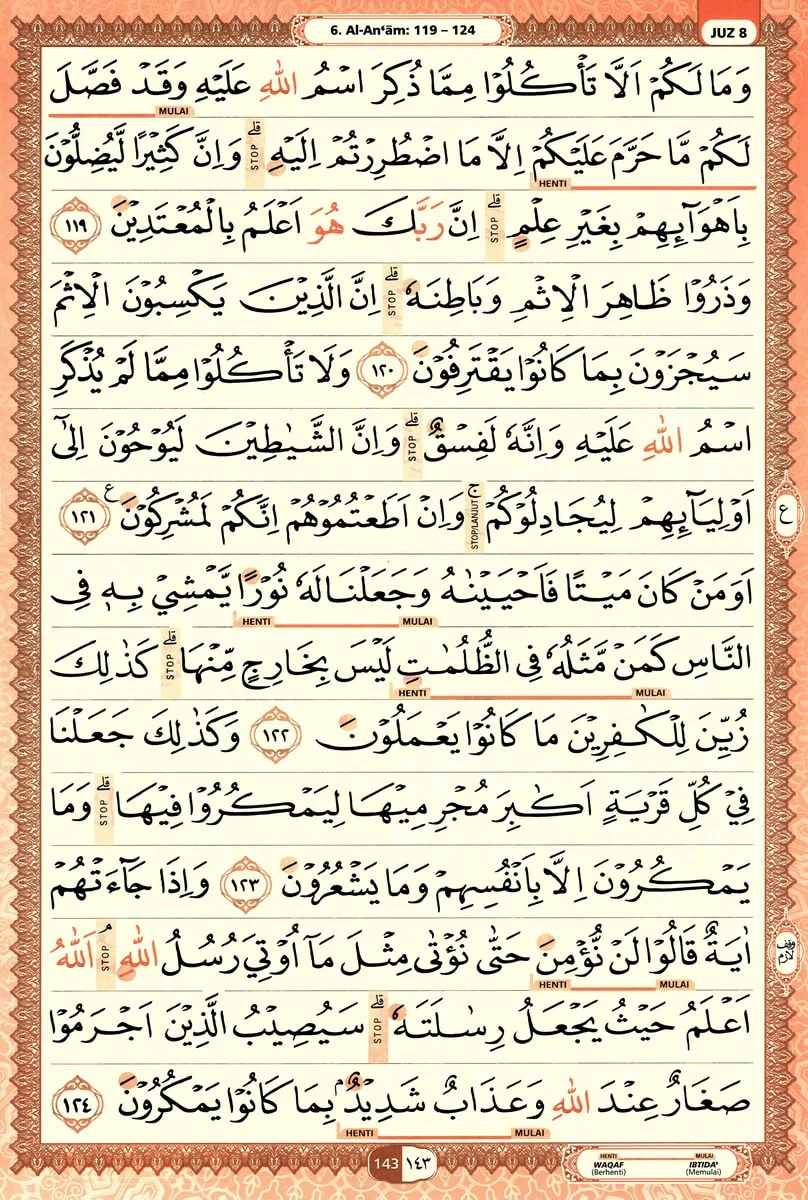 6. Al-An‘ām: 119 – 124
JUZ 8
وَمَا لَكُمْ اَلَّا تَأْكُلُوْا مِمَّا ذُكِرَ اسْمُ اللّٰهِ عَلَيْهِ وَقَدْ فَصَّلَ
MULAI
لَكُمْ مَّا حَرَّمَ عَلَيْكُمْ اِلَّا مَا اضْطُرِرْتُمْ اِلَيْهِ ۗ STOP وَاِنَّ كَثِيْرًا لَّيُضِلُّوْنَ
HENTI
بِاَهْوَاۤىِٕهِمْ بِغَيْرِ عِلْمٍ ۗ STOP اِنَّ رَبَّكَ هُوَ اَعْلَمُ بِالْمُعْتَدِيْنَ ١١٩
وَذَرُوْا ظَاهِرَ الْاِثْمِ وَبَاطِنَهٗ ۗ STOP اِنَّ الَّذِيْنَ يَكْسِبُوْنَ الْاِثْمَ
سَيُجْزَوْنَ بِمَا كَانُوْا يَقْتَرِفُوْنَ ١٢٠ وَلَا تَأْكُلُوْا مِمَّا لَمْ يُذْكَرِ
اسْمُ اللّٰهِ عَلَيْهِ وَاِنَّهٗ لَفِسْقٌ ۗ STOP وَاِنَّ الشَّيٰطِيْنَ لَيُوْحُوْنَ اِلٰٓى
اَوْلِيَاۤىِٕهِمْ لِيُجَادِلُوْكُمْ ۚ STOP/LANJUT وَاِنْ اَطَعْتُمُوْهُمْ اِنَّكُمْ لَمُشْرِكُوْنَ ع ١٢١
ع
اَوَمَنْ كَانَ مَيْتًا فَاَحْيَيْنٰهُ وَجَعَلْنَا لَهٗ نُوْرًا يَّمْشِيْ بِهٖ فِى
HENTI MULAI
النَّاسِ كَمَنْ مَّثَلُهٗ فِى الظُّلُمٰتِ لَيْسَ بِخَارِجٍ مِّنْهَا ۗ STOP كَذٰلِكَ
HENTI MULAI
زُيِّنَ لِلْكٰفِرِيْنَ مَا كَانُوْا يَعْمَلُوْنَ ١٢٢ وَكَذٰلِكَ جَعَلْنَا
فِيْ كُلِّ قَرْيَةٍ اَكٰبِرَ مُجْرِمِيْهَا لِيَمْكُرُوْا فِيْهَا ۗ STOP وَمَا
يَمْكُرُوْنَ اِلَّا بِاَنْفُسِهِمْ وَمَا يَشْعُرُوْنَ ١٢٣ وَاِذَا جَاۤءَتْهُمْ
اٰيَةٌ قَالُوْا لَنْ نُّؤْمِنَ حَتّٰى نُؤْتٰى مِثْلَ مَآ اُوْتِيَ رُسُلُ اللّٰهِ ۘ STOP اَللّٰهُ
وقف لازم
HENTI MULAI
اَعْلَمُ حَيْثُ يَجْعَلُ رِسٰلَتَهٗ ۗ STOP سَيُصِيْبُ الَّذِيْنَ اَجْرَمُوْا
صَغَارٌ عِنْدَ اللّٰهِ وَعَذَابٌ شَدِيْدٌۢ بِمَا كَانُوْا يَمْكُرُوْنَ ١٢٤
HENTI MULAI
143 ١٤٣
HENTI MULAI
WAQAF IBTIDA'
(Berhenti) (Memulai)